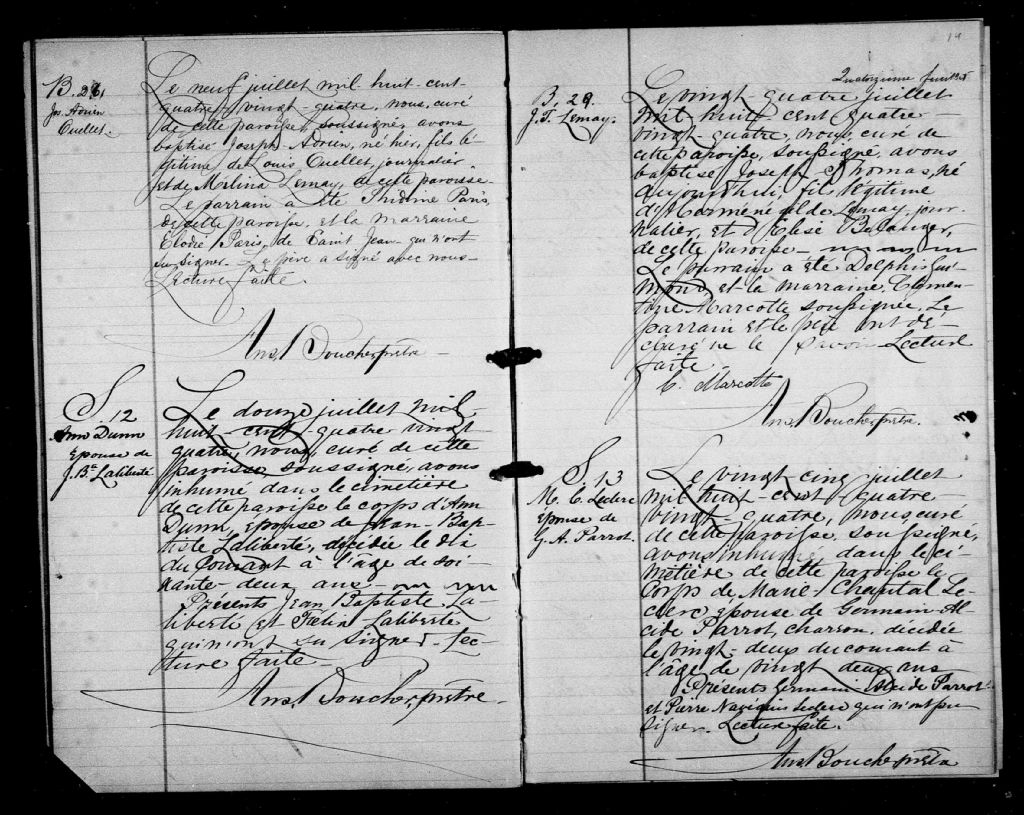 B. 28
Jos. Adrien
Ouellet.
Le neuf juillet mil huit-cent-
quatre-vingt-quatre, nous, curé
de cette paroisse, soussigné, avons
baptisé Joseph Adrien, né hier, fils lé-
gitime de Louis Ouellet, journalier
et de Mélina Lemay, de cette paroisse-
Le parrain a été Paris,
de cette paroisse, et la marraine
Elodie Paris, de Saint Jean qui n'ont
su signer. Le père a signé avec nous-
Lecture faite.
Ans. Boucher ptre
S. 12
Ann Dunn
Epouse de
J. Bte Laliberté
Le douze juillet mil
huit-cent-quatre vingt
quatre, nous, curé de cette
paroisse, soussigné, avons
inhumé dans le cimetière
de cette paroisse le corps d'Ann
Dunn, epouse de Jean-Bap-
tiste Laliberté, décédée le dix
du courant à l'âge de soi-
xante-deux ans-
Présents Jean Baptiste La-
liberté et Laliberté
qui n'ont su signer. Lec-
ture faite-
Ans. Boucher, prêtre-
14
Quatorzième feuillet
B. 29.
J. T. Lemay.
Le vingt-quatre juillet
mil huit cent quatre-
vingt-quatre, nous, curé de
cette paroisse, soussigné, avons
baptisé Joseph Thomas, né
aujourd'hui, fils légitime
d'Herménégilde Lemay, jour-
nalier, et d'Elise Bélanger,
de cette paroisse-
Le parrain a été Dolphis
et la marraine, Clémen-
tine Marcotte, soussignée. Le
parrain et le père ont dé-
claré ne le savoir- Lecture
faite-
C. Marcotte
Ans. Boucher ptre.
S. 13
M. C. Leclerc
épouse de
G. A. Parrot.
Le vingt cinq juillet
mil huit-cent quatre-
vingt-quatre, nous, curé
de cette paroisse, soussigné,
avons inhumé, dans le ci-
metière de cette paroisse le
corps de Marie Le-
clerc epouse de Germain Al-
cide Parrot, charron, décédée
le vingt-deux du courant à
l'âge de vingt deux ans
Présents Germain Alcide Parrot
et Pierre Leclerc qui n'ont pu
signer. Lecture faite.
Ans. Boucher ptre